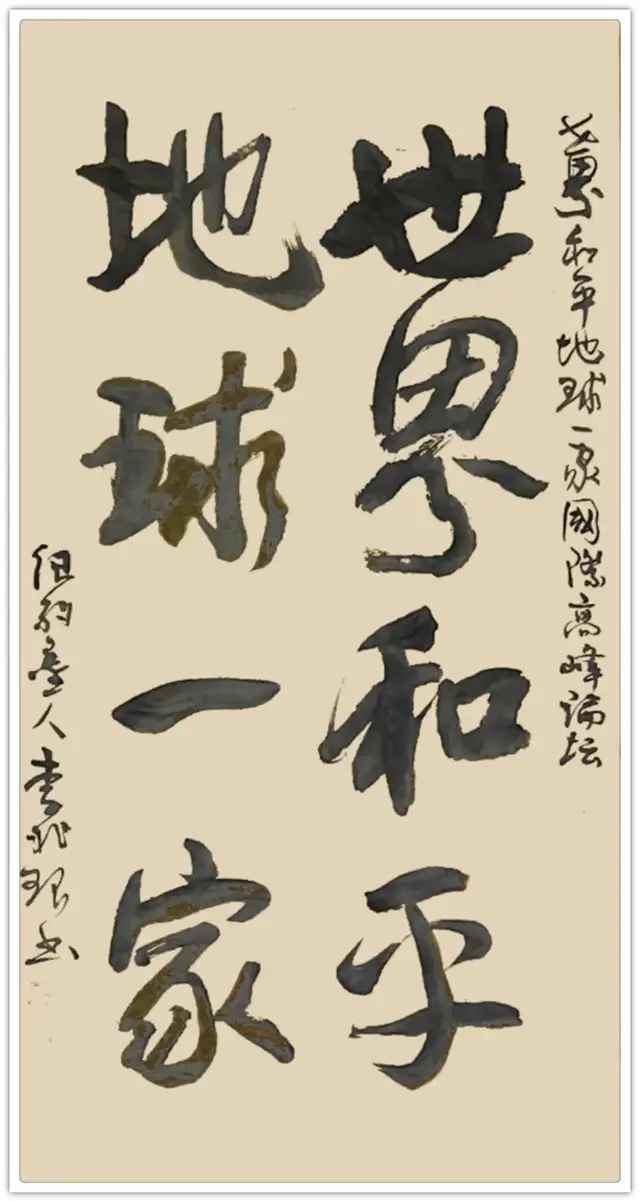 世界和平地球一家國際高峰論坛
世界和平
地球一家
纽约人李书